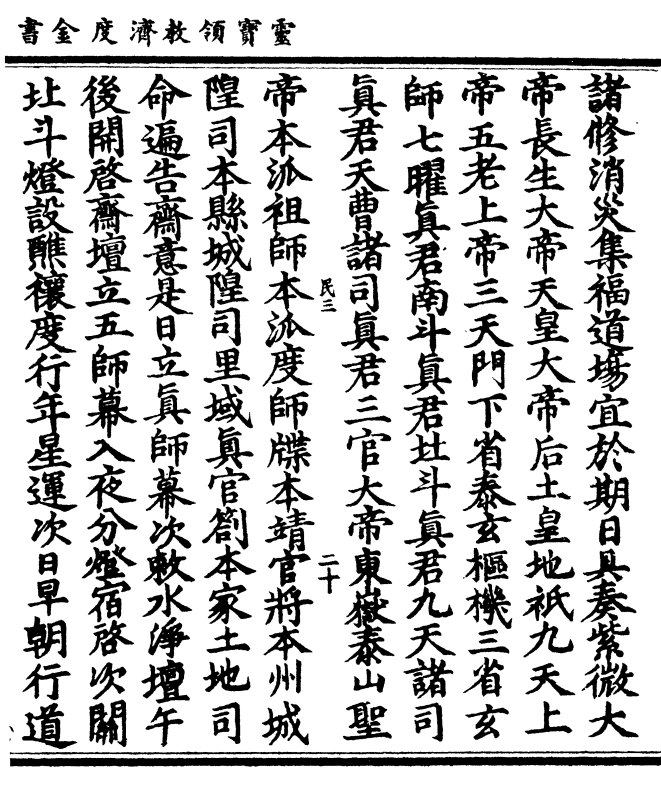 靈寶領教濟度金書
諸修消災集福道場宜於期日具奏紫微大
帝長生大帝天皇大帝后土皇地祇九天上
帝五老上帝三天門下省泰玄樞機三省玄
師七曜眞君南斗眞君北斗眞君九天諸司
眞君天曹諸司眞君三官大帝東嶽泰山聖
民三 二十
帝本派祖師本派度師牒本靖官將本州城
隍司本縣城隍司里域眞官劄本家土地司
命遍告齋意是日立眞師幕次敕水淨壇午
後開啓齋壇立五師幕入夜分燈宿啓次關
北斗燈設醮禳度行年星運次日早朝行道